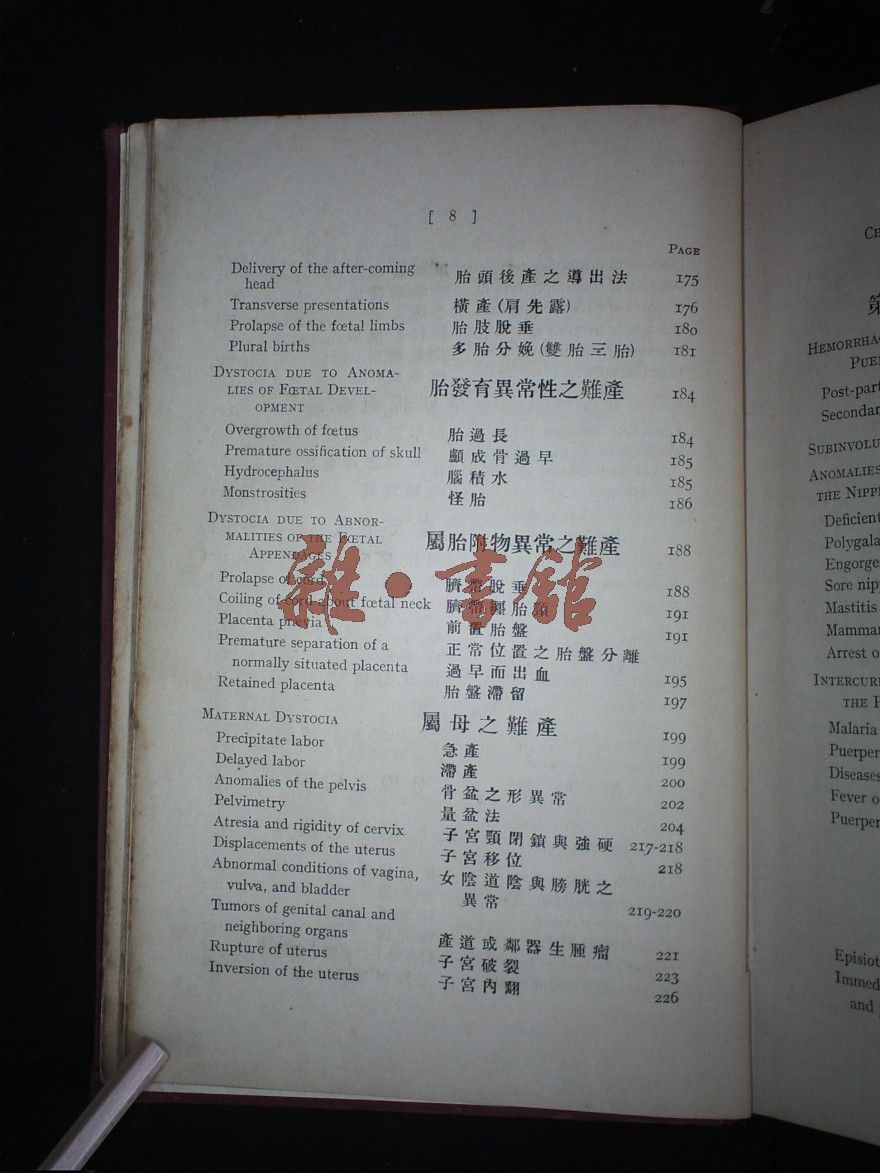 [ 8 ]
PAGE
Delivery of the after-coming 胎頭後產之導出法 175
head
Transverse presentations 橫產(肩先露) 176
Prolapse of the fœtal limbs 胎肢脫垂 180
Plural births 多胎分娩(雙胎三胎) 181
DYSTOCIA DUE TO ANOMA-
LIES OF FŒTAL DEVEL- 胎發育異常性之難產 184
OPMENT
Overgrowth of fœtus 胎過長 184
Premature ossification of skull 顱成骨過早 185
Hydrocephalus 腦積水 185
Monstrosities 怪胎 186
DYSTOCIA DUE TO ABNOR-
MALITIES OF THE FŒTAL 屬胎附物異常之難產 188
APPENDAGES
Prolapse of cord 臍帶脫垂 188
Coiling of cord about fœtal neck 臍帶纏胎頸 191
Placenta prævia 前置胎盤 191
Premature separation of a 正常位置之胎盤分離
normally situated placenta 過早而出血 195
Retained placenta 胎盤滯留 197
MATERNAL DYSTOCIA 屬母之難產 199
Precipitate labor 急產 199
Delayed labor 滯產 200
Anomalies of the pelvis 骨盆之形異常 202
Pelvimetry 量盆法 204
Atresia and rigidity of cervix 子宮頸閉鎖與強硬 217-218
Displacements of the uterus 子宮移位 218
Abnormal conditions of vagina, 女陰道陰與膀胱之
vulva, and bladder 異常 219-220
Tumors of genital canal and
neighboring organs 產道或鄰器生腫瘤 221
Rupture of uterus 子宮破裂 223
Inversion of the uterus 子宮內翻 226
雜·書館
第
HEMORRHA
PUE
Post-part
Secondar
SUBINVOLU
ANOMALIES
THE NIPP
Deficient
Polygala
Engorge
Sore nip
Mastitis
Mammar
Arrest o
INTERCUR
THE
Malaria
Puerper
Diseases
Fever o
Puerper
Episiot
Immed
and